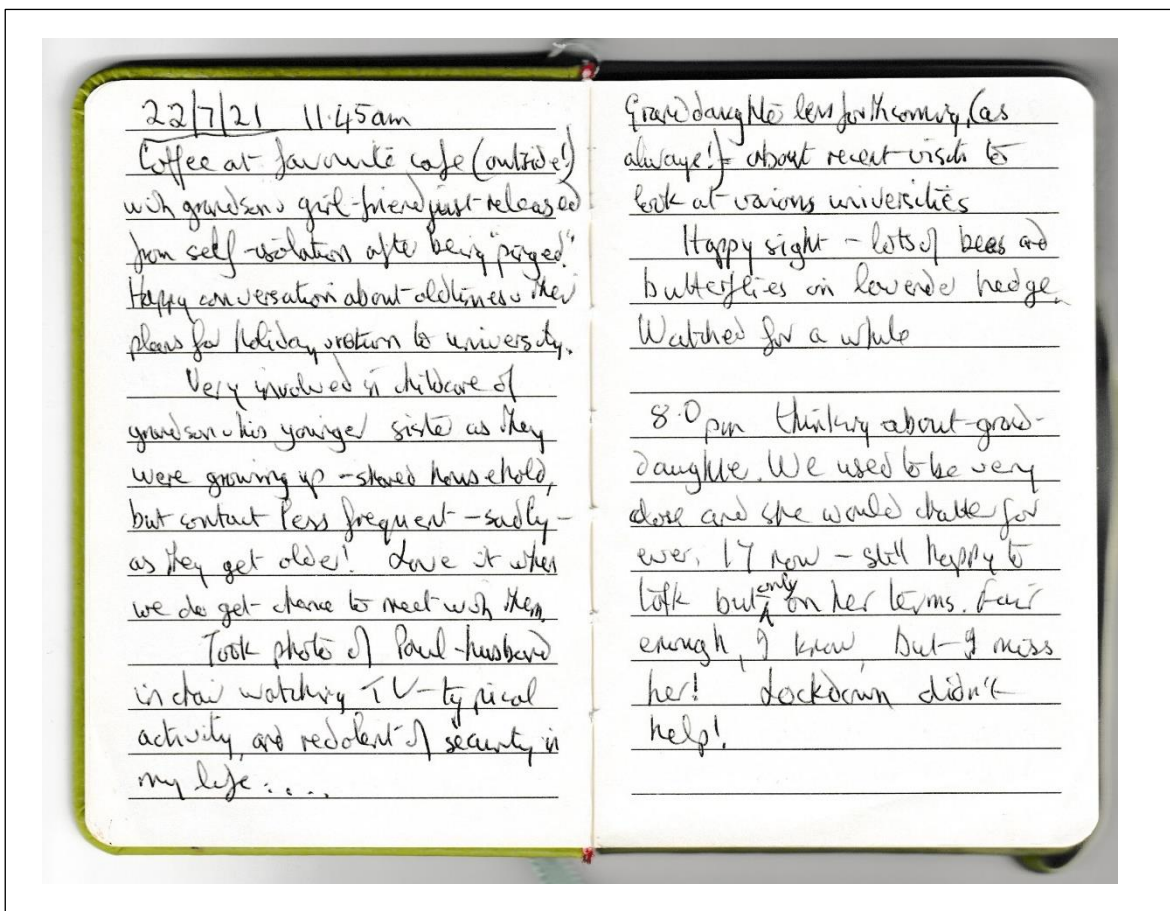 22/7/21 11.45am
Coffee at favourite cafe (outside!)
with grandson & girl-friend just released
from self-isolation after being "pinged".
Happy conversation about old times & their
plans for holiday & return to university.
Very involved in childcare of
grandson & his younger sister as they
were growing up – shared household,
but contact less frequent – sadly –
as they get older! Love it when
we do get chance to meet with them.
Took photo of Paul – husband
in chair watching TV – typical
activity, and redolent of "security" in
my life....
Granddaughter less forthcoming, (as
always!) – about recent visits to
look at various universities
Happy sight – lots of bees and
butterflies on lavender hedge.
Watched for a while
8.0 pm thinking about grand-
daughter. We used to be very
close and she would chatter for
ever. 17 now – still happy to
talk but only on her terms. Fair
enough, I know, but I miss
her! Lockdown didn't
help!